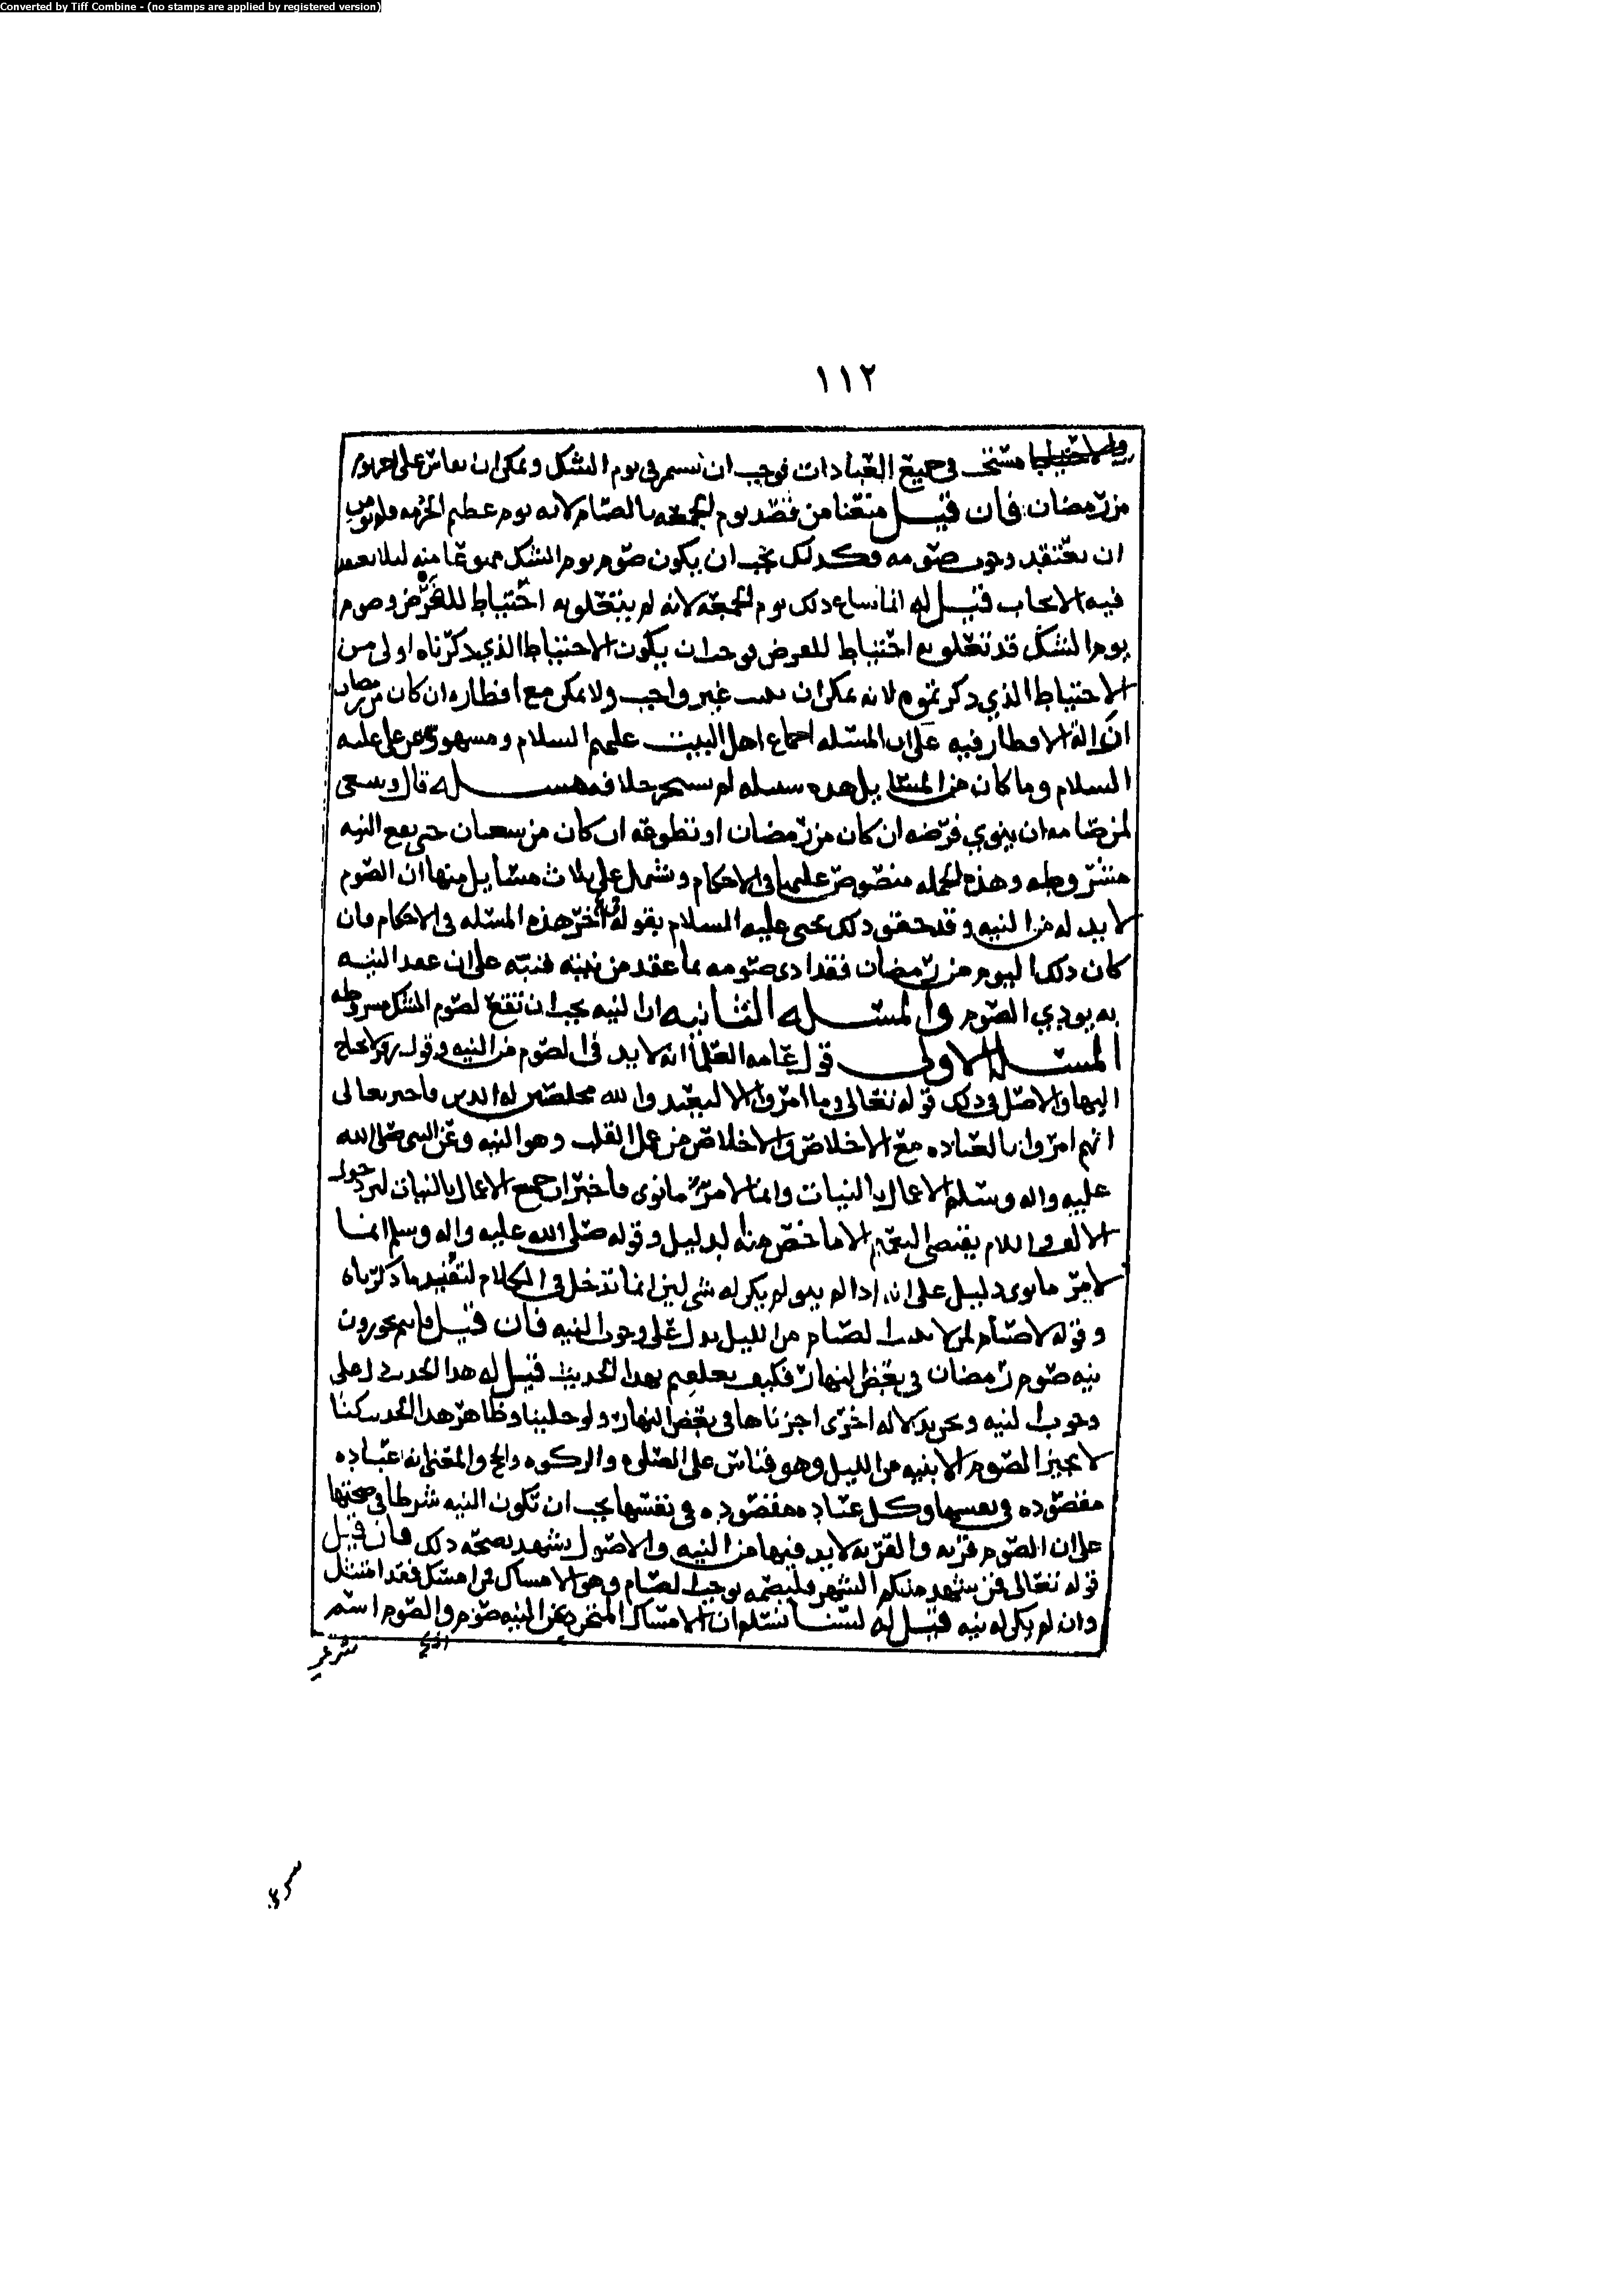 Converted by Tiff Combine - (no stamps are applied by registered version)
١١٢
والاحتياط مستحب في جميع العبادات فوجب ان يستمر في يوم الشك ويمكن ان يقاس على اخر يوم
من رمضان فان قيل منعنا من قصد يوم الجمعه بالصيام لانه يوم عظيم الحرمه
ان يعتقد وجوب صومه فكذلك يجب ان يكون صوم يوم الشك ممنوعا منه ليلا يعتقد
فيه الايجاب قيل له انما ساغ ذلك يوم الجمعه لانه لم يتعلق به احتياط للفرض وصوم
يوم الشك قد تعلق به احتياط للفرض فوجب ان يكون الاحتياط الذي ذكرناه اولى من
الاحتياط الذي ذكرتموه لانه يمكن ان غير واجب ولا يمكن مع افطاره ان كان من رمضان
الافطار فيه على ان المسئله اجماع اهل البيت عليهم السلام ومشهور عن علي عليه
السلام وما كان من المسائل هذه سبيله لم خلافه مسئله قال وينبغي
لمن صامه ان ينوي فرضه ان كان من رمضان او تطوعه ان كان من شعبان حتى يقع النيه
مشروطه وهذه الجمله منصوص عليها في الاحكام وتشتمل على ثلاث مسايل منها ان الصوم
لا بد له من النيه وقد حقق ذلك يحيى عليه السلام بقوله في اخر هذه المسئله في الاحكام فان
كان ذلك اليوم من رمضان فقد ادى صومه بما عقد من نيته فنبه على ان عقد النيه
به يودي الصوم والمسئله الثانيه ان النيه يجب ان تقع لصوم الشك مشروطه
المسئله الاولى قول عامه العلما انه لا بد في الصوم من النيه وقول زفر لا يحتاج
اليها والاصل في ذلك قوله تعالى وما امروا الا ليعبدوا الله مخلصين له الدين فاخبر تعالى
انهم امروا بالعباده مع الاخلاص والاخلاص من عمل القلب وهو النيه وعن النبي صلى الله
عليه واله وسلم الاعمال بالنيات وانما لامرئ ما نوى فاخبر ان جميع الاعمال بالنيات لان دخول
الالف واللام يقتضي التعميم الا ما خص منه الدليل وقوله صلى الله عليه واله وسلم انما
لامرئ ما نوى دليل على انه اذا لم ينو لم يكن له شي لان انما تدخل في الكلام لتفيد ما ذكرناه
وقوله لا صيام لمن لا يبت الصيام من الليل يدل على وجوب النيه فان قيل فانتم تجوزون
نيه صوم رمضان في بعض النهار فكيف تعلقتم بهذا الحديث قيل له هذا الحديث دل على
وجوب النيه ونحن بدلاله اخرى اجزناها في بعض النهار ولو خلينا وظاهر هذا الحديث كنا
لا نجيز الصوم الا بنيه من الليل وهو قياس على الصلوه والزكوه والحج والمعنى انه عباده
مقصوده في نفسها وكل عباده مقصوده في نفسها يجب ان تكون النيه شرطا في صحتها
على ان الصوم قربه والقربه لا بد فيها من النيه والاصول يشهد بصحه ذلك فان قيل
قوله تعالى فمن شهد منكم الشهر فليصمه يوجب الصيام وهو الامساك فمن امسك فقد امتثل
وان لم يكن له نيه قيل له لسنا نسلم ان الامساك المتجرد عن النيه صوم والصوم اسم
شرعي